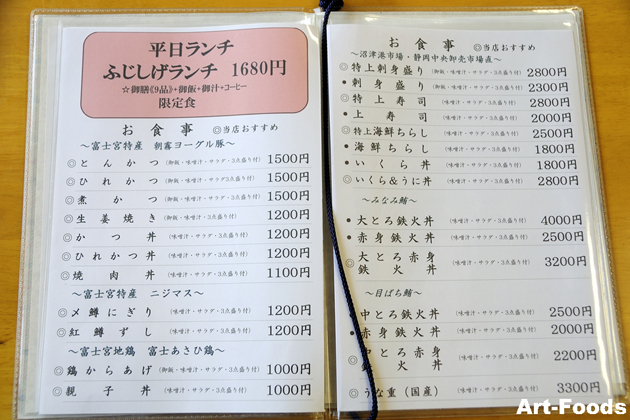 平日ランチ
ふじしげランチ 1680円
☆御膳《9品》+御飯+御汁+コーヒー
限定食
お食事 ◎当店おすすめ
～富士宮特産 朝霧ヨーグル豚～
◎とんかつ (御飯・味噌汁・サラダ・3点盛り付) 1500円
◎ひれかつ (御飯・味噌汁・サラダ・3点盛り付) 1500円
◎煮かつ (御飯・味噌汁・サラダ・3点盛り付) 1500円
◎生姜焼き (御飯・味噌汁・サラダ・3点盛り付) 1200円
◎かつ丼 (味噌汁・サラダ・3点盛り付) 1200円
◎ひれかつ丼 (味噌汁・サラダ・3点盛り付) 1200円
◎焼肉丼 (味噌汁・サラダ・3点盛り付) 1100円
～富士宮特産 ニジマス～
◎〆鱒にぎり (味噌汁・サラダ・3点盛り付) 1200円
◎紅鱒ずし (味噌汁・サラダ・3点盛り付) 1200円
～富士宮地鶏 富士あさひ鶏～
◎鶏からあげ (御飯・味噌汁・サラダ・3点盛り付) 1000円
◎親子丼 (味噌汁・サラダ・3点盛り付) 1000円
お食事 ◎当店おすすめ
～沼津港市場・静岡中央卸売市場直～
◎特上刺身盛り (御飯・味噌汁・サラダ・3点盛り付) 2800円
・刺身盛り (御飯・味噌汁・サラダ・3点盛り付) 2300円
◎特上寿司 (味噌汁・サラダ・3点盛り付) 2800円
・上寿司 (味噌汁・サラダ・3点盛り付) 2000円
◎特上海鮮ちらし (味噌汁・サラダ・3点盛り付) 2500円
・海鮮ちらし (味噌汁・サラダ・3点盛り付) 1800円
・いくら丼 (味噌汁・サラダ・3点盛り付) 1800円
◎いくら&うに丼 (味噌汁・サラダ・3点盛り付) 2800円
～みなみ鮪～
・大とろ鉄火丼 (味噌汁・サラダ・3点盛り付) 4000円
・赤身鉄火丼 (味噌汁・サラダ・3点盛り付) 2500円
◎大とろ赤身鉄火丼 (味噌汁・サラダ・3点盛り付) 3200円
～目ばち鮪～
◎中とろ鉄火丼 (味噌汁・サラダ・3点盛り付) 2500円
・赤身鉄火丼 (味噌汁・サラダ・3点盛り付) 2000円
◎中とろ赤身鉄火丼 (味噌汁・サラダ・3点盛り付) 2200円
◎うな重(国産) (味噌汁・サラダ・3点盛り付) 3300円
Art-Foods